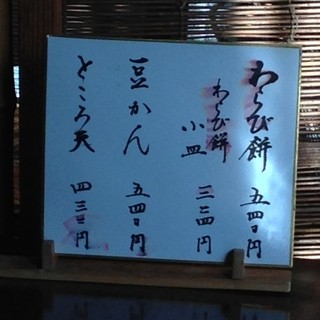 わらび餅 五四〇円
わらび餅 小皿 三二四円
豆かん 五四〇円
ところ天 四三二円